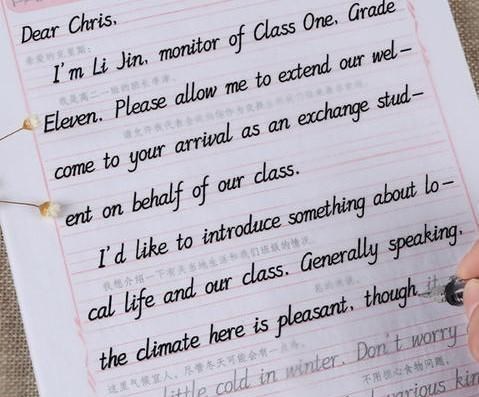 Dear Chris,
亲爱的克里斯:
I'm Li Jin, monitor of Class One, Grade
我是高二一班的班长李津。
Eleven. Please allow me to extend our wel-
come to your arrival as an exchange stud-
ent on behalf of our class.
I'd like to introduce something about lo-
我想介绍一下有关当地生活和我们班级的情况。
cal life and our class. Generally speaking,
the climate here is pleasant, though it
这里气候宜人，尽管冬天可能会有一点冷。
little cold in winter. Don't worry
不用担心食物问题，
various kin